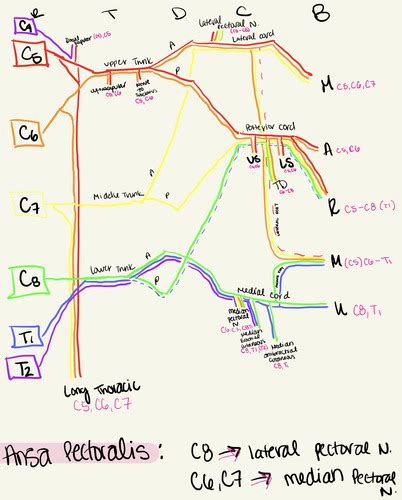 R T D C B
C4
Dorsal scapular C4,C5
Lateral Pectoral N.
(C5-C6)
Lateral cord
C5
A
upper Trunk
P
suprascapular
C5,C6
nerve to subclavius
C5,C6
M C5,C6,C7
C6
Posterior cord
US
LS
TD
C6-C8
A C5,C6
C7
Middle Trunk
A
P
R C5-C8 (T1)
lateral root
C8
Lower Trunk
A
P
M (C5)C6-T1
Medial cord
U C8,T1
T1
median pectoral N.
C6,C7,C8,T1
median brachial cutaneous
C8,T1
Median antibrachial cutaneous
C8,T1
T2
Long Thoracic
C5,C6,C7
Ansa Pectoralis: C8 → lateral pectoral N.
C6,C7 → median Pectoral N.